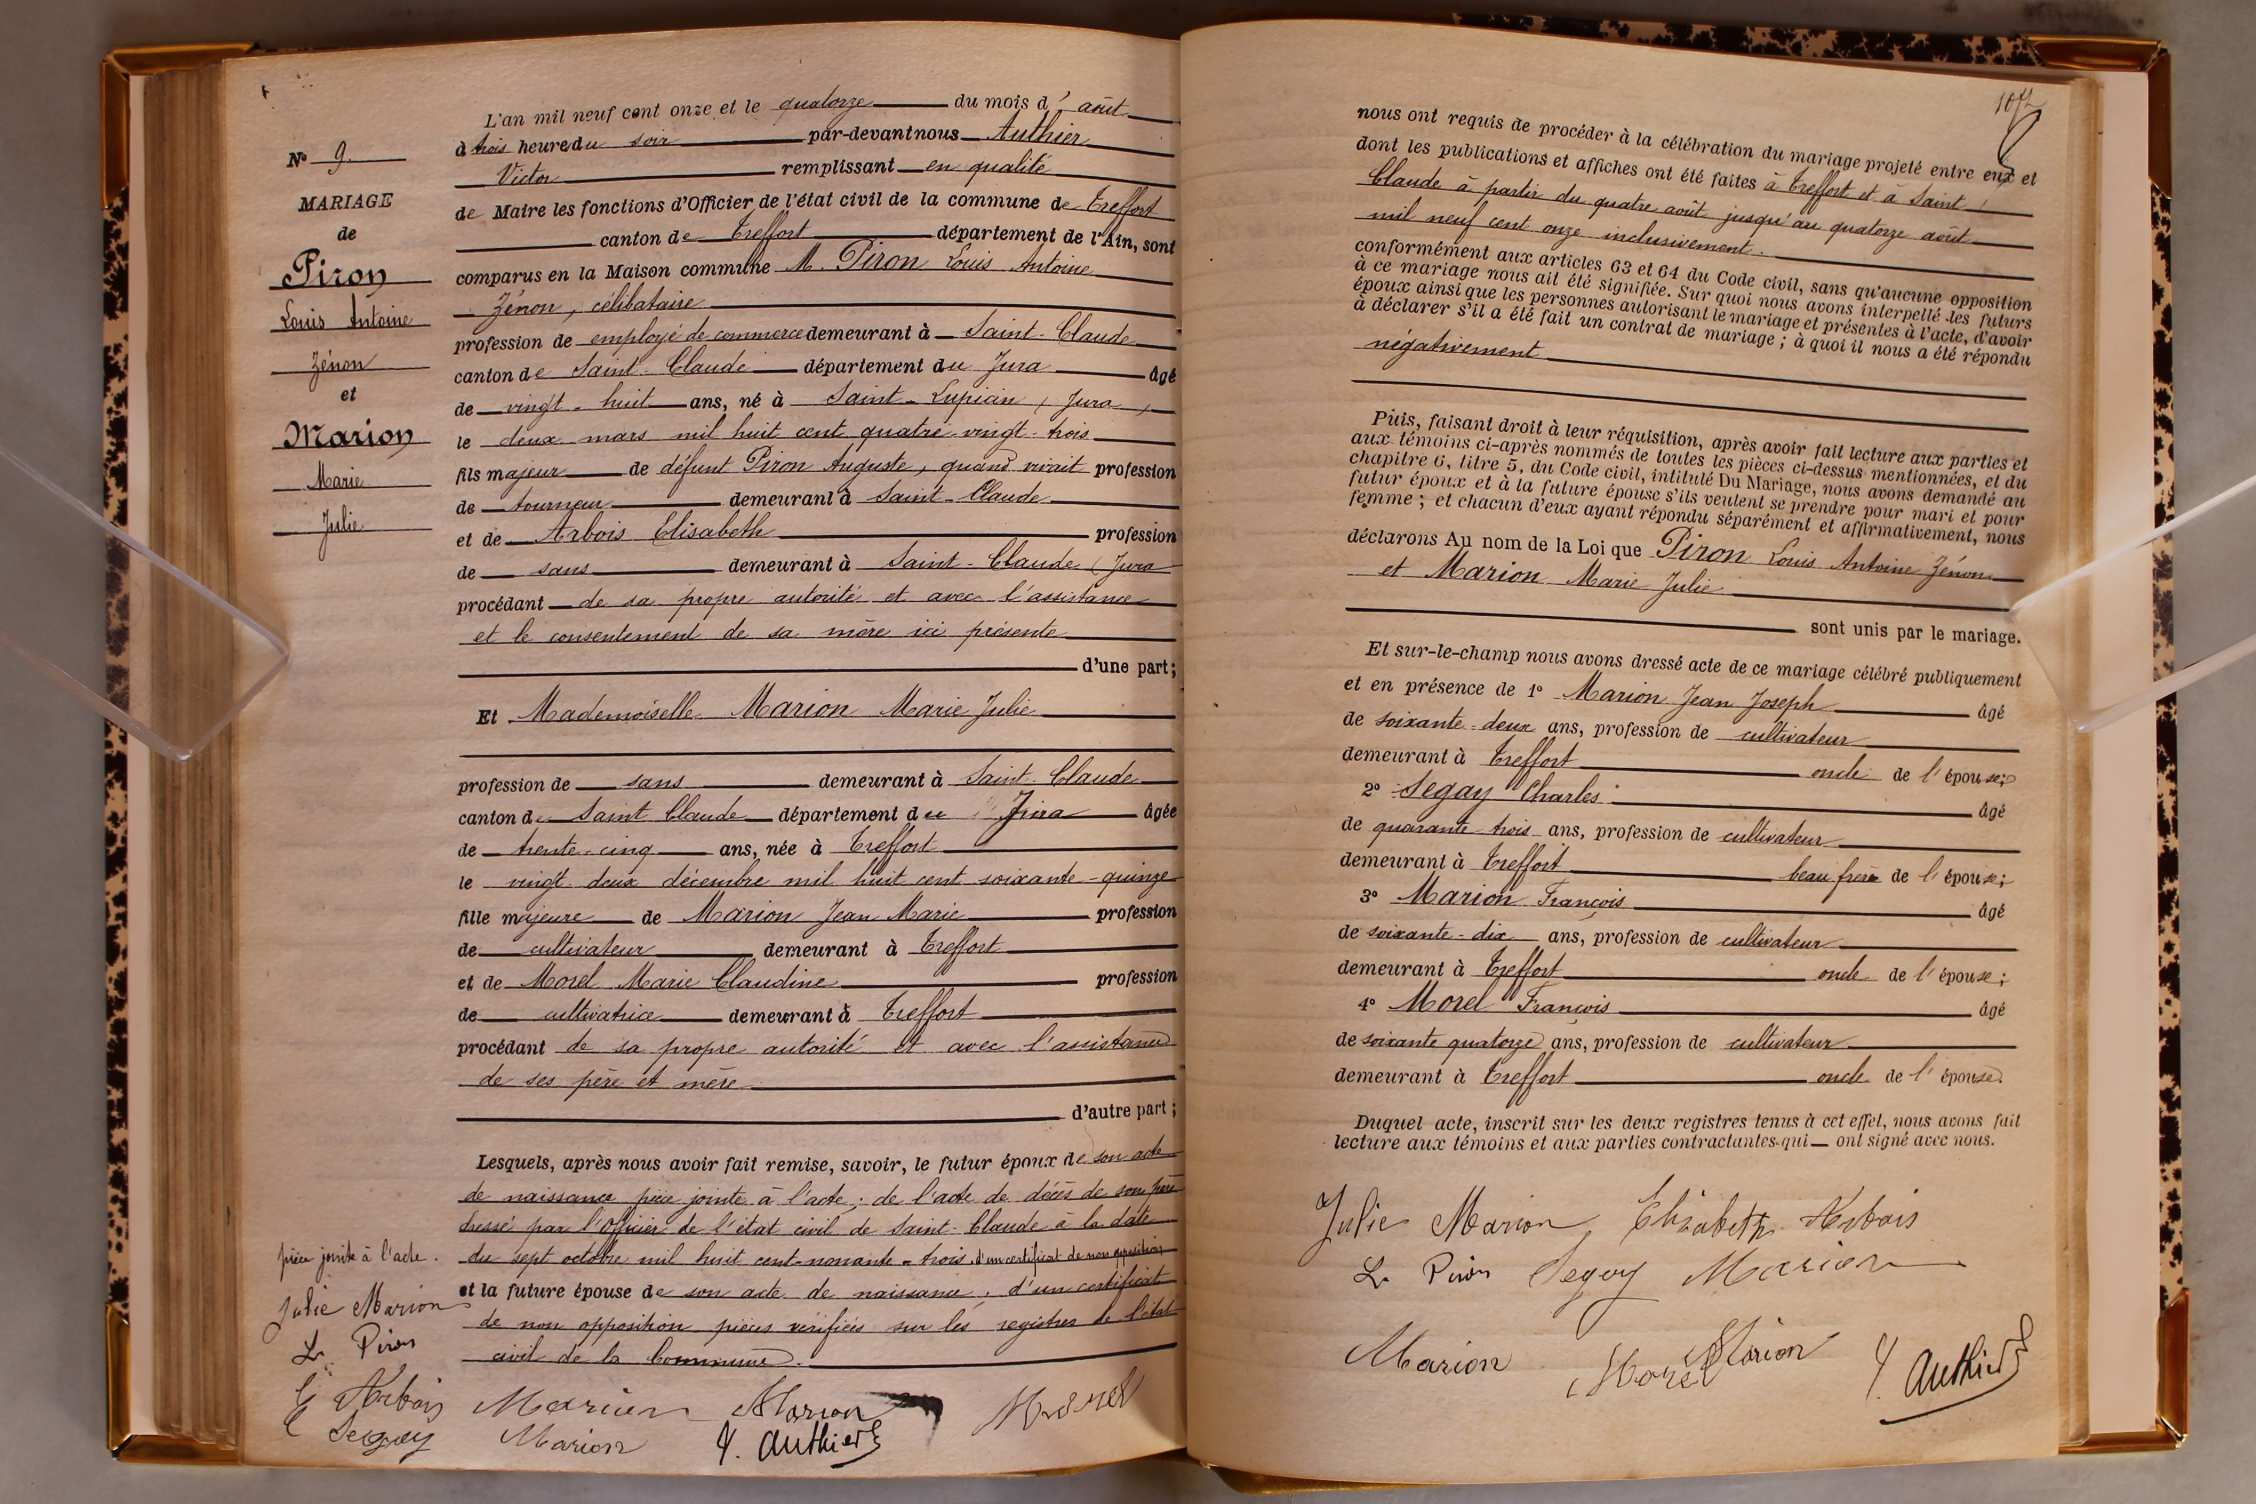 L'an mil neuf cent onze et le quatorze du mois d'août
à trois heure du soir par-devant nous Authier
Victor remplissant en qualité
de Maire les fonctions d'Officier de l'état civil de la commune de Treffort
canton de Treffort département de l'Ain, sont
comparus en la Maison commune M. Piron Louis Antoine
Zénon, célibataire
profession de employé de commerce demeurant à Saint-Claude
canton de Saint-Claude département du Jura âgé
de vingt-huit ans, né à Saint-Lupicin (Jura)
le deux mars mil huit cent quatre-vingt-trois
fils majeur de défunt Piron Auguste, quand vivait profession
de tourneur demeurant à Saint-Claude
et de Arbois Elisabeth profession
de sans demeurant à Saint-Claude (Jura
procédant de sa propre autorité et avec l'assistance
et le consentement de sa mère ici présente
d'une part;
Et Mademoiselle Marion Marie Julie
profession de sans demeurant à Saint-Claude
canton de Saint Claude département du Jura âgée
de trente-cinq ans, née à Treffort
le vingt-deux décembre mil huit cent soixante-quinze
fille majeure de Marion Jean Marie profession
de cultivateur demeurant à Treffort
et de Morel Marie Claudine profession
de cultivatrice demeurant à Treffort
procédant de sa propre autorité et avec l'assistance
de ses père et mère
d'autre part;
Lesquels, après nous avoir fait remise, savoir, le futur époux de son acte
de naissance pièce jointe à l'acte; de l'acte de décès de son père
dressé par l'Officier de l'état civil de Saint-Claude à la date
du sept octobre mil huit cent-nonante-trois. d'un certificat de non opposition
et la future épouse de son acte de naissance, d'un certificat
de non opposition pièces vérifiées sur les registres de l'état
civil de la Commune.
N° 9.
MARIAGE
de
Piron
Louis Antoine
Zénon
et
Marion
Marie
Julie
pièce jointe à l'acte.
Julie Marion
L. Piron
E Arbois Marion Marion Morel
Segay Marion V. Authier
107
nous ont requis de procéder à la célébration du mariage projeté entre eux et
dont les publications et affiches ont été faites à Treffort et à Saint
Claude à partir du quatre août jusqu'au quatorze août
mil neuf cent onze inclusivement.
conformément aux articles 63 et 64 du Code civil, sans qu'aucune opposition
à ce mariage nous ait été signifiée. Sur quoi nous avons interpellé les futurs
époux ainsi que les personnes autorisant le mariage et présentes à l'acte, d'avoir
à déclarer s'il a été fait un contrat de mariage; à quoi il nous a été répondu
négativement
Puis, faisant droit à leur réquisition, après avoir fait lecture aux parties et
aux témoins ci-après nommés de toutes les pièces ci-dessus mentionnées, et du
chapitre 6, titre 5, du Code civil, intitulé Du Mariage, nous avons demandé au
futur époux et à la future épouse s'ils veulent se prendre pour mari et pour
femme; et chacun d'eux ayant répondu séparément et affirmativement, nous
déclarons Au nom de la Loi que Piron Louis Antoine Zénon
et Marion Marie Julie
sont unis par le mariage.
Et sur-le-champ nous avons dressé acte de ce mariage célébré publiquement
et en présence de 1° Marion Jean Joseph âgé
de soixante-deux ans, profession de cultivateur
demeurant à Treffort oncle de l'épouse;
2° Segay Charles âgé
de quarante-trois ans, profession de cultivateur
demeurant à Treffort beau frère de l'épouse;
3° Marion François âgé
de soixante-dix ans, profession de cultivateur
demeurant à Treffort oncle de l'épouse;
4° Morel François âgé
de soixante quatorze ans, profession de cultivateur
demeurant à Treffort oncle de l'épouse.
Duquel acte, inscrit sur les deux registres tenus à cet effet, nous avons fait
lecture aux témoins et aux parties contractantes qui ont signé avec nous.
Julie Marion Elisabeth Arbois
L. Piron Segay Marion
Marion Morel Marion V. Authier